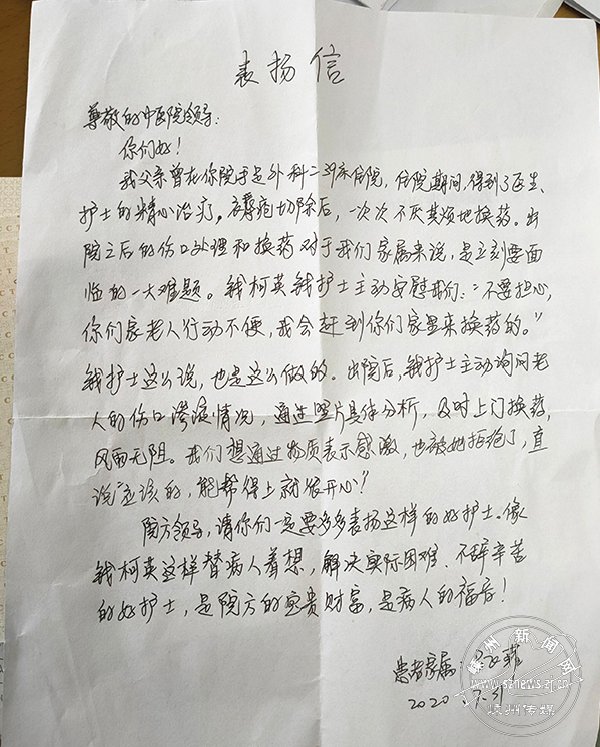 表扬信
尊敬的中医院领导:
你们好!
我父亲曾在你院手足外科二39床住院,住院期间,得到了医生、
护士的精心治疗。褥疮切除后,一次次不厌其烦地换药。出
院之后的伤口处理和换药对于我们家属来说,是立刻要面
临的一大难题。钱柯英钱护士主动安慰我们:“不要担心,
你们家老人行动不便,我会赶到你们家里来换药的。”
钱护士这么说,也是这么做的。出院后,钱护士主动询问老
人的伤口渗液情况,通过照片具体分析,及时上门换药,
风雨无阻。我们想通过物质表示感激,也被她拒绝了,直
说“应该的,能帮得上就很开心”
院方领导,请你们一定要多多表扬这样的好护士。像
钱柯英这样替病人着想,解决实际困难、不辞辛苦
的好护士,是院方的宝贵财富,是病人的福音!
患者家属:
2020
嵊州新闻网
www.sznews.zj.cn
嵊州传媒